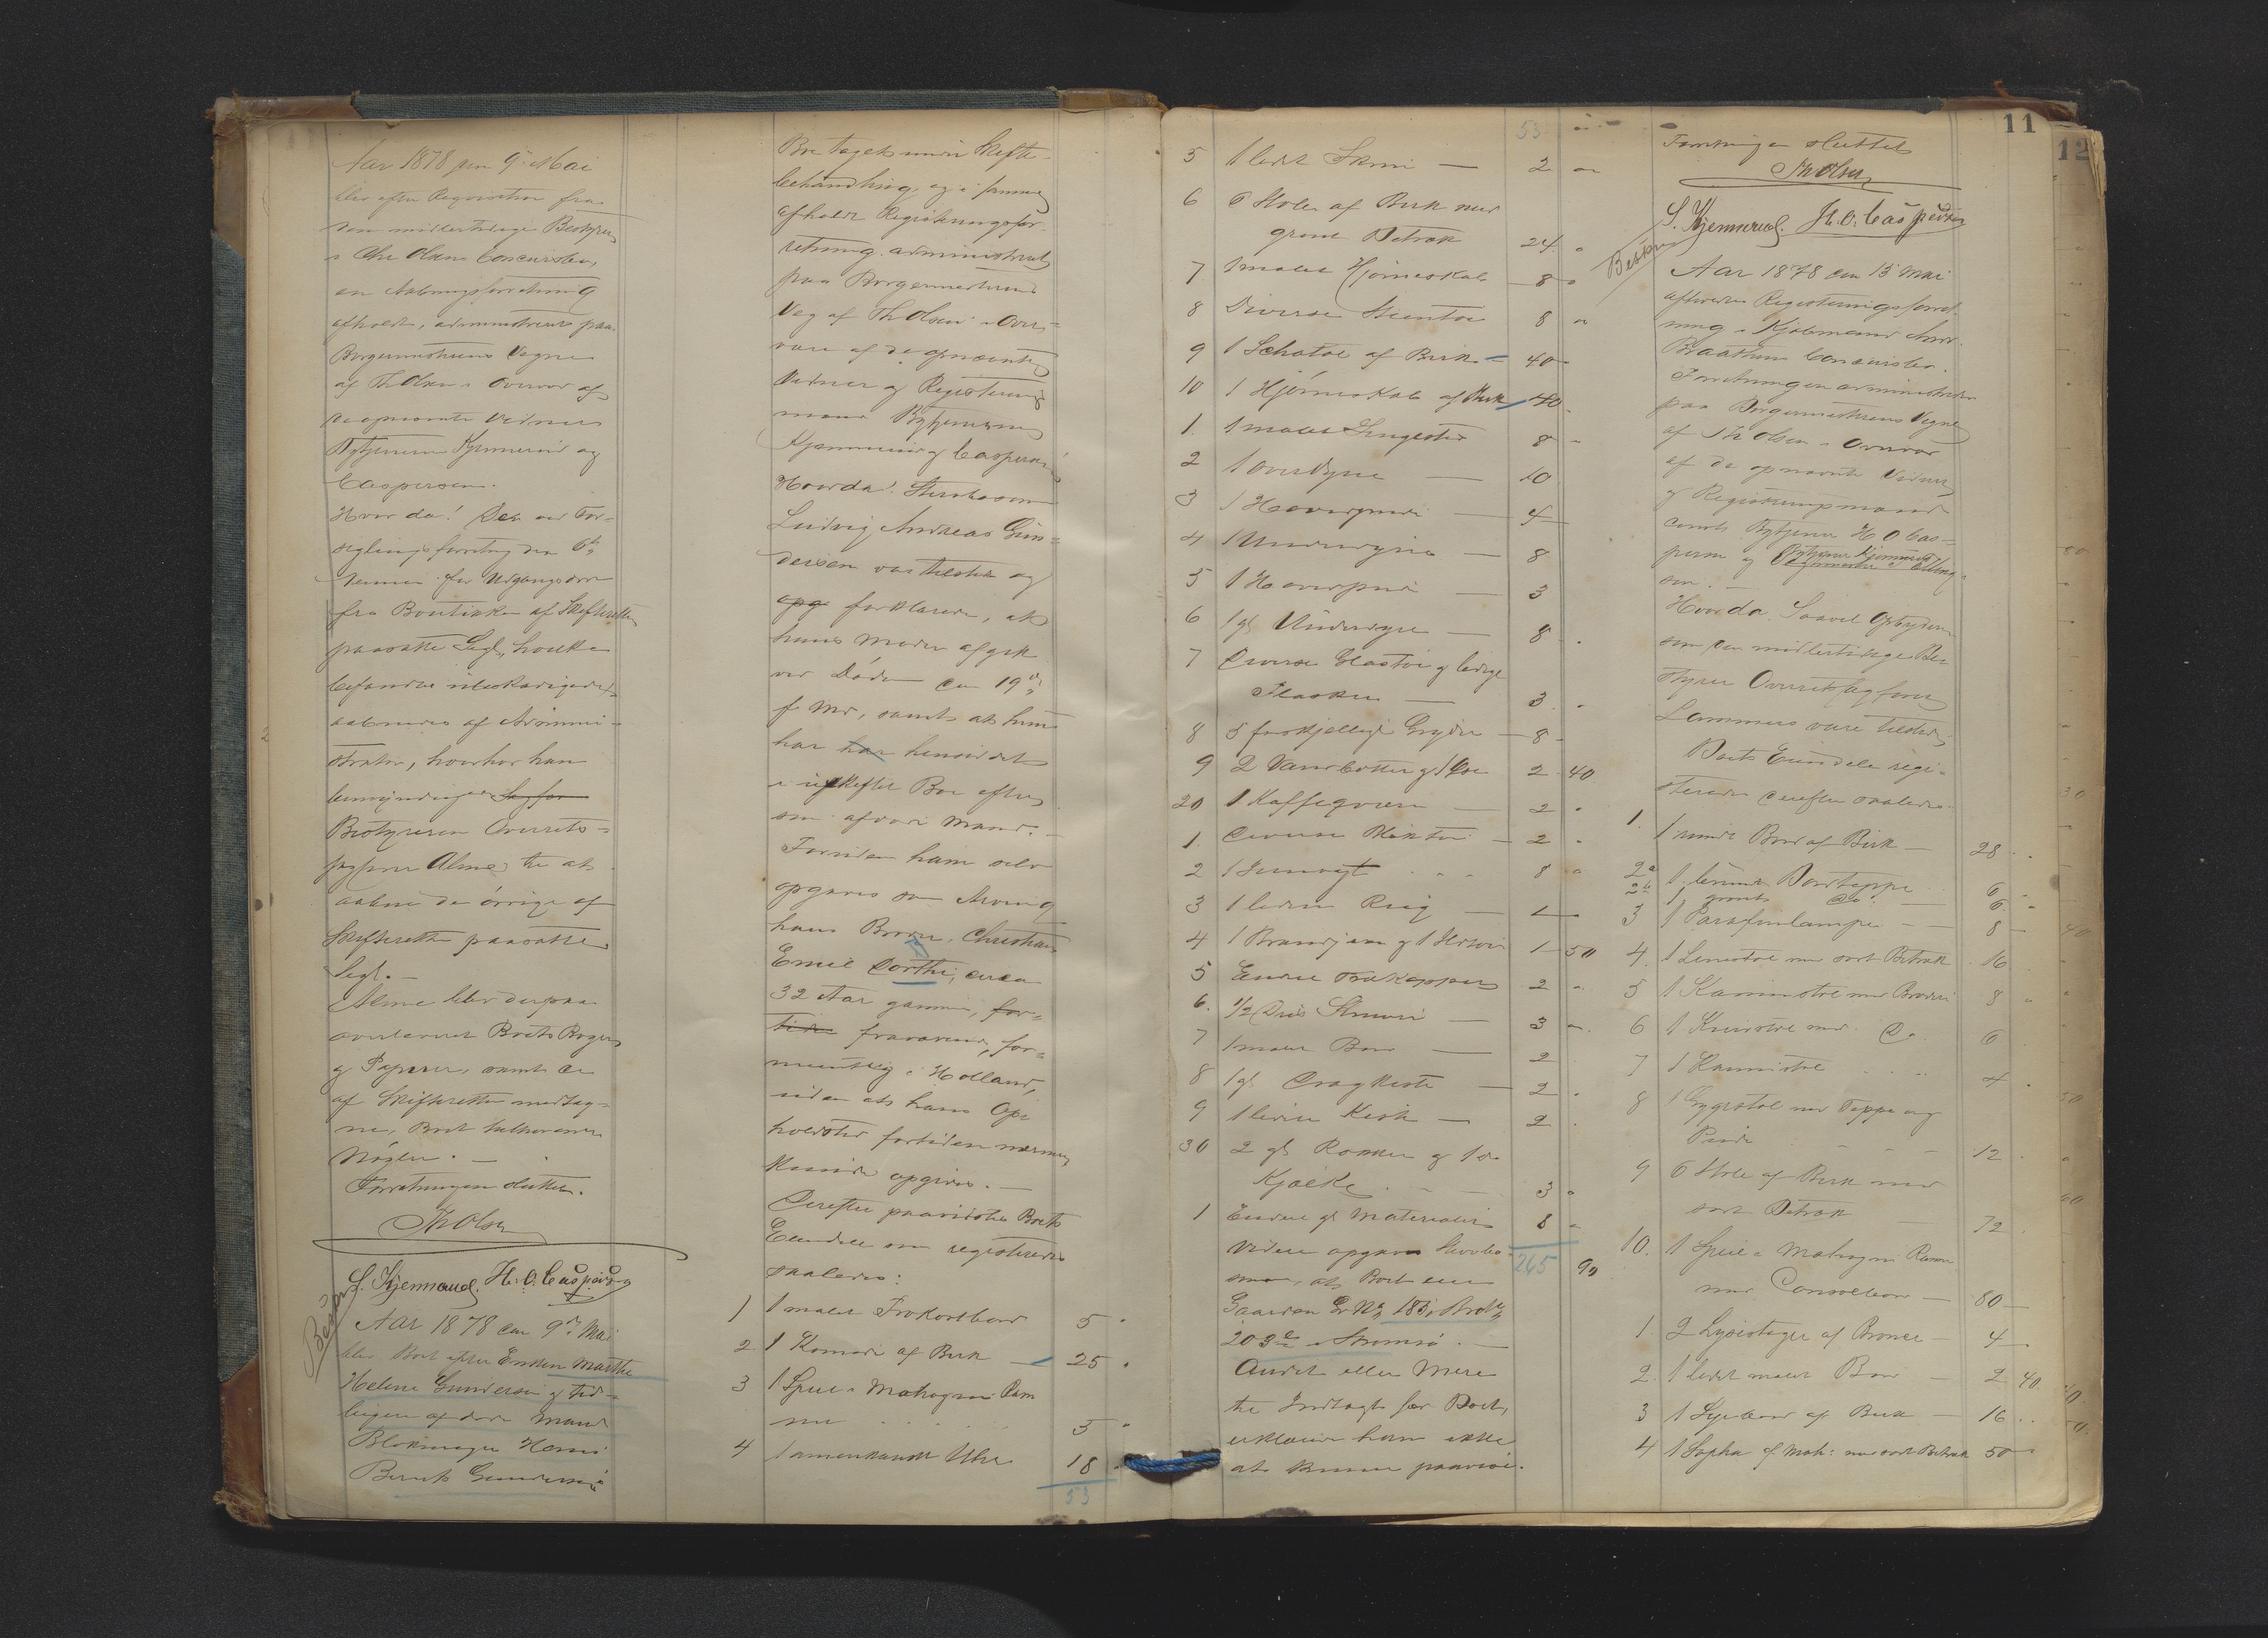 Aar 1878 den 9de Mai
blev efter Requisition fra
den midlertidige Bestyrer
i Chr Olsens Concursbo,
en Aabningsforretning
afholdt, administreret paa
Borgermesterens Vegne
af Th Olsen i Overvær af
de opnævnte Vidner
Bytjenerne Kjennerud og
Caspersen.
Hvor da! Det ved For-
seglingsforretng den 6te
dennes for Udgangsdøren
fra Boutikken af Skifteretten
paasatte Segl, hvilke
befandtes ubeskadigede
aabnedes af Admini-
strator, hvorhos han
bemyndigede Sagfør
Bestyreren Overrets-
sagfører Alme til at
aabne de øvrige af
Skifteretten paasatte
Segl. —
Alme blev derpaa
overleveret Boets Bøger
og Papirer, samt de
af Skifteretten medtag-
ne, Boet tilhørende
Nøgler. —
Forretningen sluttet.
Th Olsen
S. Kjennerud. H. O. Caspersen
Aar 1878 den 9de Mai
blev Boet efter Enken Marthe
Helene Gundersen og tid-
ligere afdøde Mand
Blokmager Hans
Bernt Gundersen
Boe taget under Skifte-
behandling, og i samme
afholdt Registreringsfor-
retning administreret
paa Borgermesterens
Veg af Th Olsen i Over-
være af de opnævnte
Vidner og Registrerings
mænd Bytjenerne
Kjennerud og Caspersen
Hvorda! Stervbosøn
Ludvig Andreas Gun-
dersen var tilstede og
opg forklarede, at
hans Moder afgik
ved Døden den 19de
f Md, samt at hun
har har hensiddet
i uskiftet Bo efter
sin afdøde Mand. —
Foruden ham selv
opgaves som Arving
hans Broder, Christian
Emil Dorthe, circa
32 Aar gammel, for-
tiden fraværende, for-
mentlig i Holland,
uden at hans Op-
holdsted fortiden nærmere
kunde opgives. —
Derefter paavistes Boets
Eiendele som registreredes
saaledes:
1 1 malet Frokostbord 5
2 1 Komode af Birk — 25
3 1 Speil i Mahogni Ram
me 5
4 1 amerikansk Uhr 18
53
53
5 1 lidet Skrin — 2
6 6 Stole af Birk med
grønt Betræk 24
7 1 malet Hjørneskab 8
8 Diverse Steentøi 8
9 1 Schatol af Birk 40
10 1 Hjørneskab af Birk 40
1. 1 malet Sengested 8
2 1 Overdyne — 10
3 1 Hovedpude — 4
4 1 Underdyne — 8
5 1 Hovedpude — 3
6 1 gl Underdyne — 8
7 Diverse Glastøi og ledige
Flasker — 3
8 5 forskjellige Gryder — 8
9 2 Vandbøtter og 1 Øse 2 40
20 1 Kaffeqværn — 2
1. Diverse Bliktøi — 2
2 1 8
3 1 liden — 1
4 1 Brandjern og 1 1 50
5 Endel Trækopper 2
6. 1/2 Dus — 3
7 1 malet Bord — 2
8 1 gl Dragkiste — 2
9 1 liden Kiste — 2
30 2 gl Rokker og 1 do
Kjælke 3
1 Endel gl Materialier 8
265 90
Videre opgav Stervbo-
sønnen, at Boet eier
Gaarden Gr No 183, Br No
203 i Strømsø. —
Andet eller Mere
til Indtægt for Boet,
erklærede han ikke
at kunne paavise.
11
12
Forretningen sluttet
Th Olsen
S. Kjennerud. H. O. Caspersen
Aar 1878 den 13 Mai
afholdtes Registreringsforret-
ning i Kjøbmand Andr.
Braathens Concursbo.
Forretningen administreredes
paa Borgermesterens Vegne
af Th Olsen i Overvær
af de opnævnte Vidner
og Registreringsmænd
Bytjener H O Cas-
persen og Bytjener Kjennerud
Hvorda Saavel Opbyderen
som den midlertidige Be-
styrer Overretssagfører
Lammers vare tilstede
Boets Eiendele regi-
streredes derefter saaledes:
1. 1 rundt Bord af Birk — 28
2a 1 brunt Bordteppe 6
2b 1 grønt do. — 6
3 1 Parafinlampe — 8
4. 1 Lænestol med sort Betræk 16
5 1 Kaminstol med Broderi 8
6 1 med Do 6
7 1 Kaminstol 4
8 1 Gyngestol med Teppe og
Pude 12
9 6 Stole af Birk med
sort Betræk 72
10. 1 Speil i Mahogni Ramme
med Consolbord — 80
1. 2 Lysestager af Bronce — 4
2. 1 lidet malet Bord — 2 40
3 1 Sybord af Birk — 16
4 1 Sopha af Mah: med sort Betræk 50